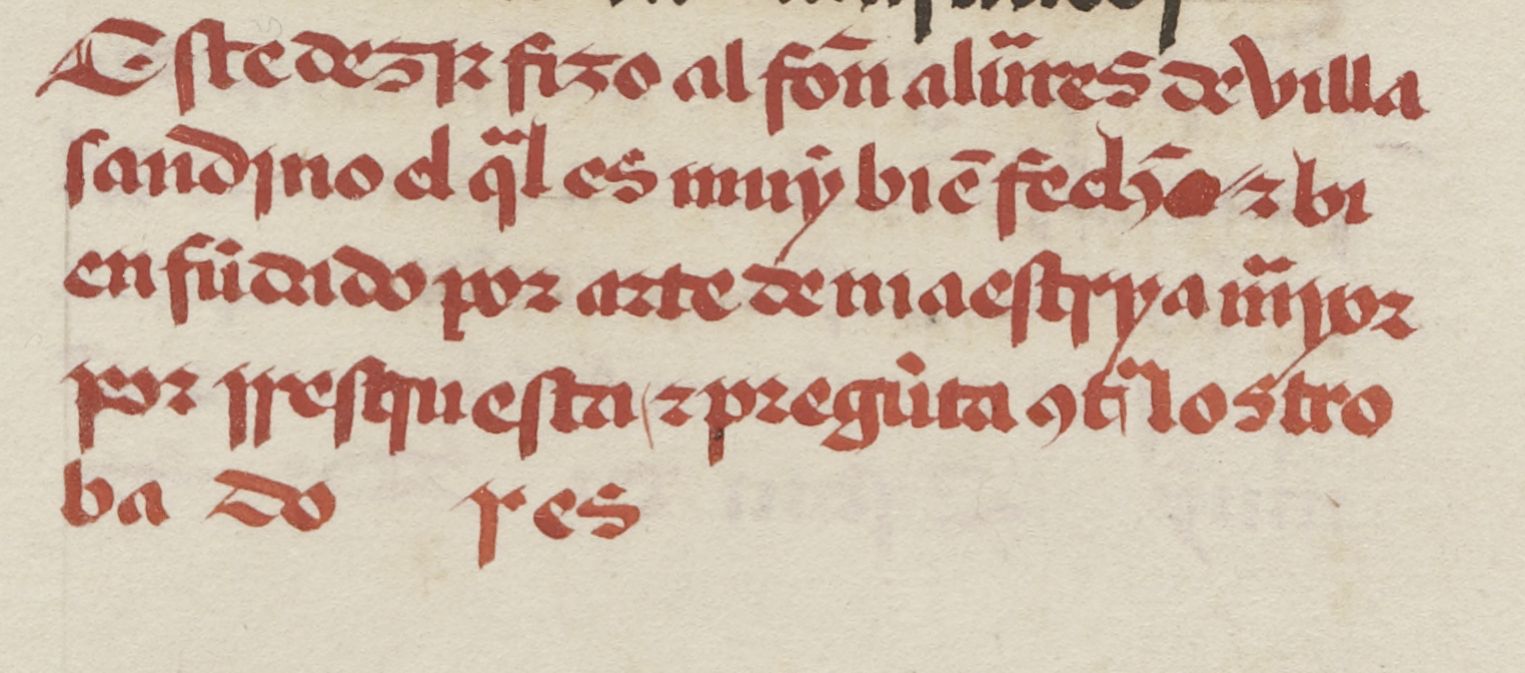 Este dezir fizo alfoñ alũres de villa
sandino el q̃l es muy biẽ fecho ⁊ bi
en fũdado por arte de maestrya mãyor
por rrespuesta / ⁊ pregũta ꝯtͣ los tro
ba do res